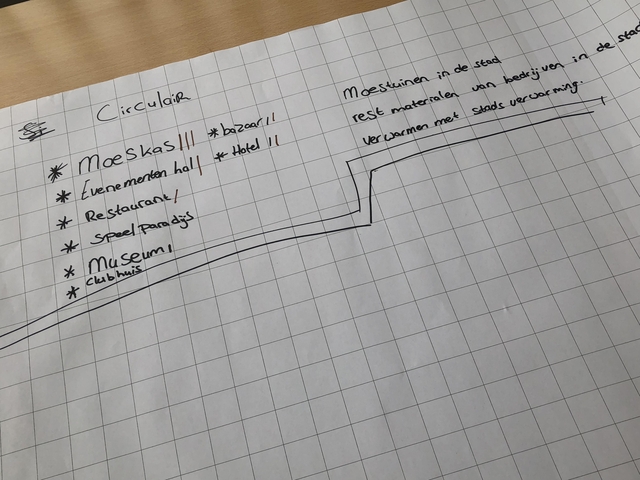 Circulair
* Moeskas ||| * bazaar ||
* Evenementen hal | * Hotel ||
* Restaurant |
* Speel Paradijs
* Museum |
* Clubhuis
Moestuinen in de stad
rest materialen van bedrijven in de stad
verwarmen met stads verwarming.